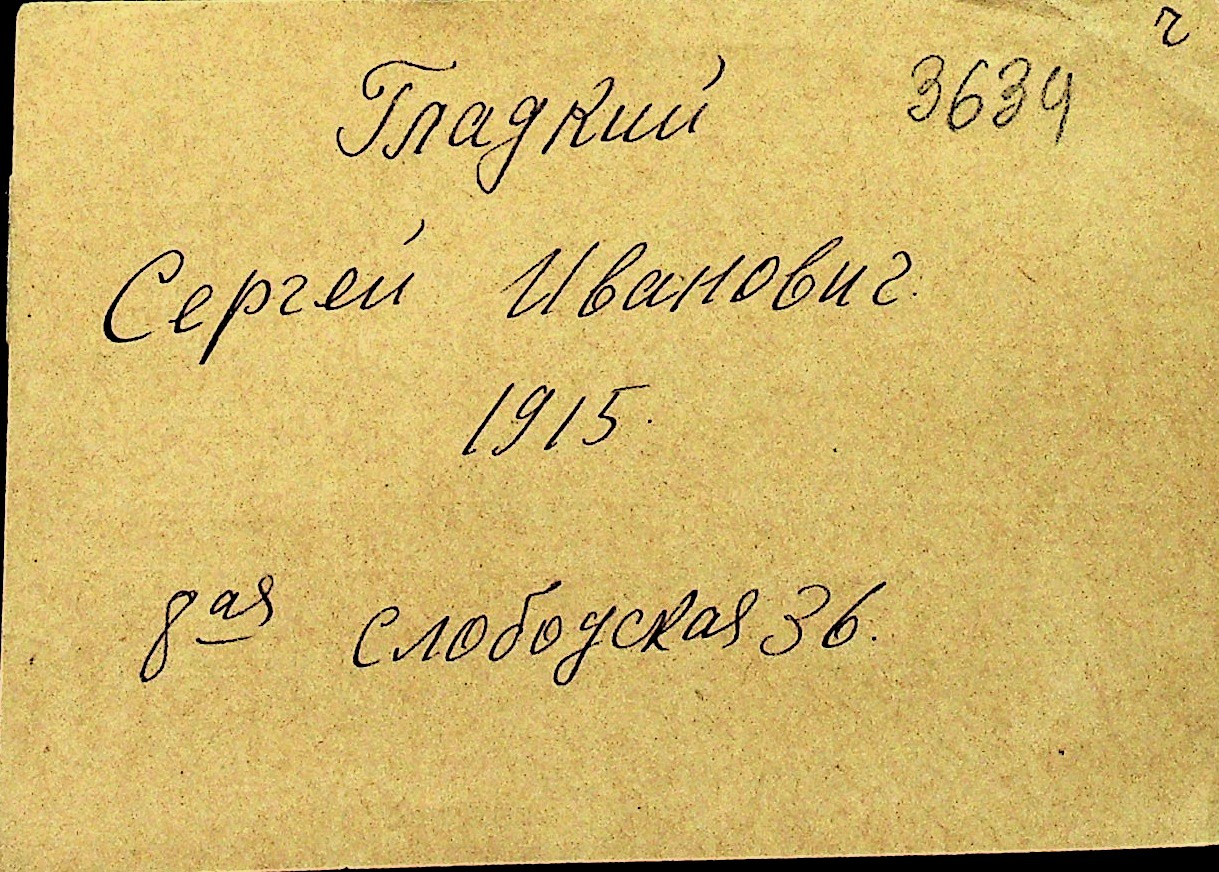 ч
Гладкий 3634
Сергей Иванович.
1915.
8ая слободская 36.